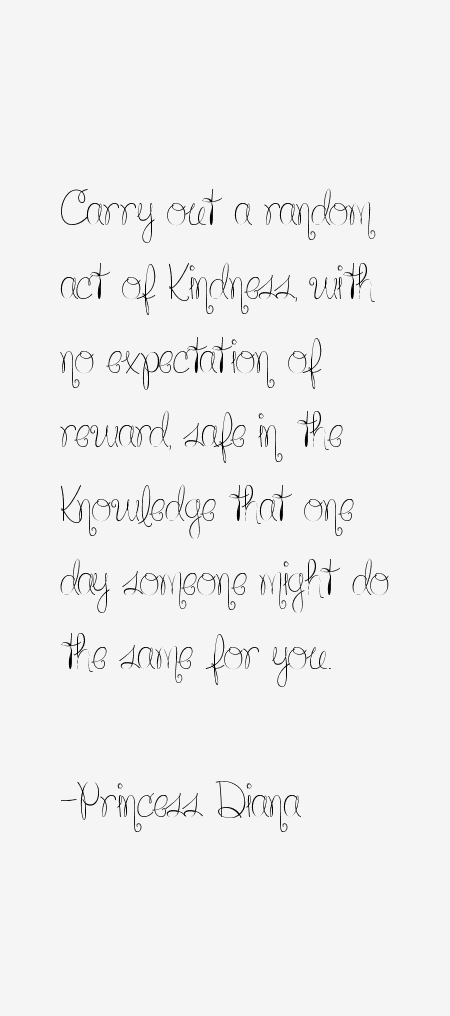 Carry out a random
act of kindness, with
no expectation of
reward, safe in the
knowledge that one
day someone might do
the same for you.
-Princess Diana